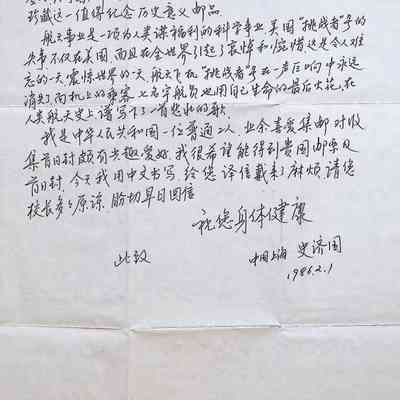 珍藏这一值得纪念历史意义邮品。
航天事业是一项为人类谋福利的科学事业,美国“挑战者”号的
失事不仅在美国,而且在全世界引起了哀悼和惋惜这是令人难
忘的一天震惊世界的一天,航天飞机“挑战者”号在一声巨响中永远
消失了而机上的乘客、七名宇航员也用自己生命的最后火花,在
人类航天史上谱写下了一首悲壮的歌。
我是中华人民共和国一位普通工人,业余喜爱集邮对收
集首日封颇有兴趣爱好,我很希望能得到贵国邮票及
首日封,今天我用中文书写,给您译信戴来了麻烦,请您
校长多多原谅,盼切早日回信
祝您身体健康
此致
中国上海 史济国
1986.2.1